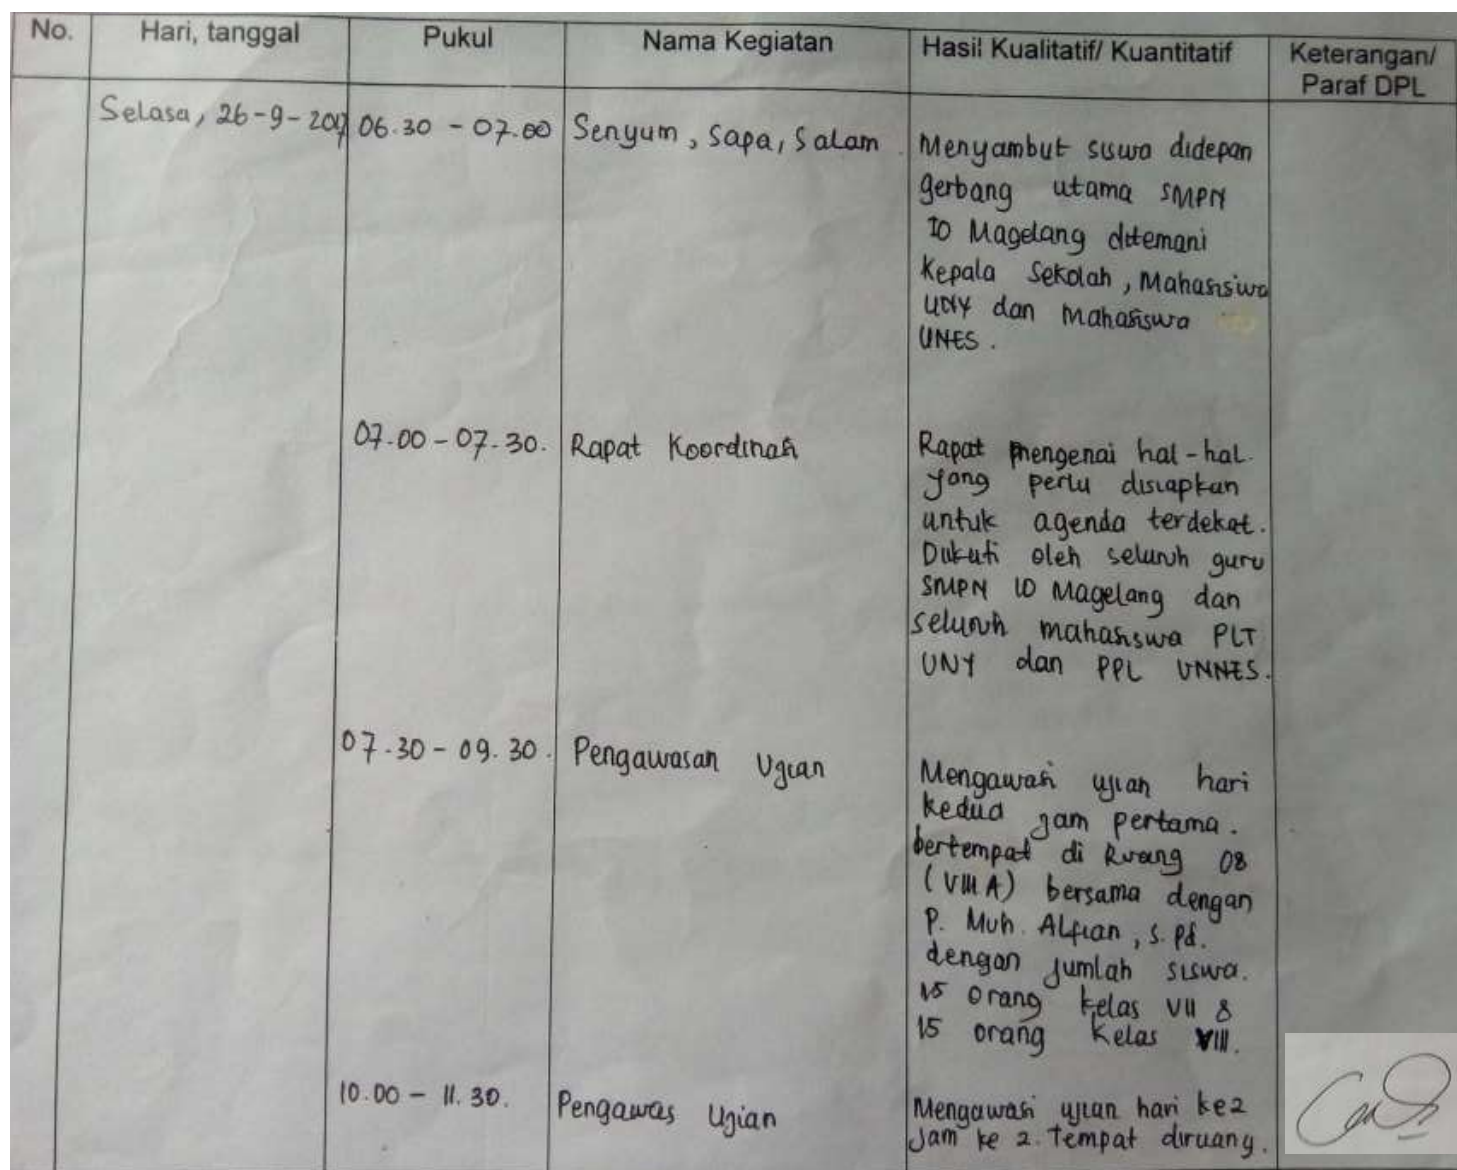 No. Hari, tanggal Pukul Nama Kegiatan Hasil Kualitatif/ Kuantitatif Keterangan/
Paraf DPL
Selasa, 26-9-2017 06.30 - 07.00 Senyum, Sapa, Salam. Menyambut siswa didepan
gerbang utama SMPN
10 Magelang ditemani
Kepala Sekolah, Mahasiswa
UNY dan Mahasiswa
UNES.
07.00 - 07.30. Rapat Koordinasi Rapat mengenai hal-hal.
yang perlu disiapkan
untuk agenda terdekat.
Diikuti oleh seluruh guru
SMPN 10 Magelang dan
seluruh mahasiswa PLT
UNY dan PPL UNNES.
07.30 - 09.30. Pengawasan Ujian Mengawasi ujian hari
kedua jam pertama.
bertempat di Ruang 08
(VIII A) bersama dengan
P. Muh. Alfian, S.Pd.
dengan jumlah siswa.
15 orang kelas VII &
15 orang kelas VIII.
10.00 - 11.30. Pengawas Ujian Mengawasi ujian hari ke2
Jam ke 2. Tempat diruang.